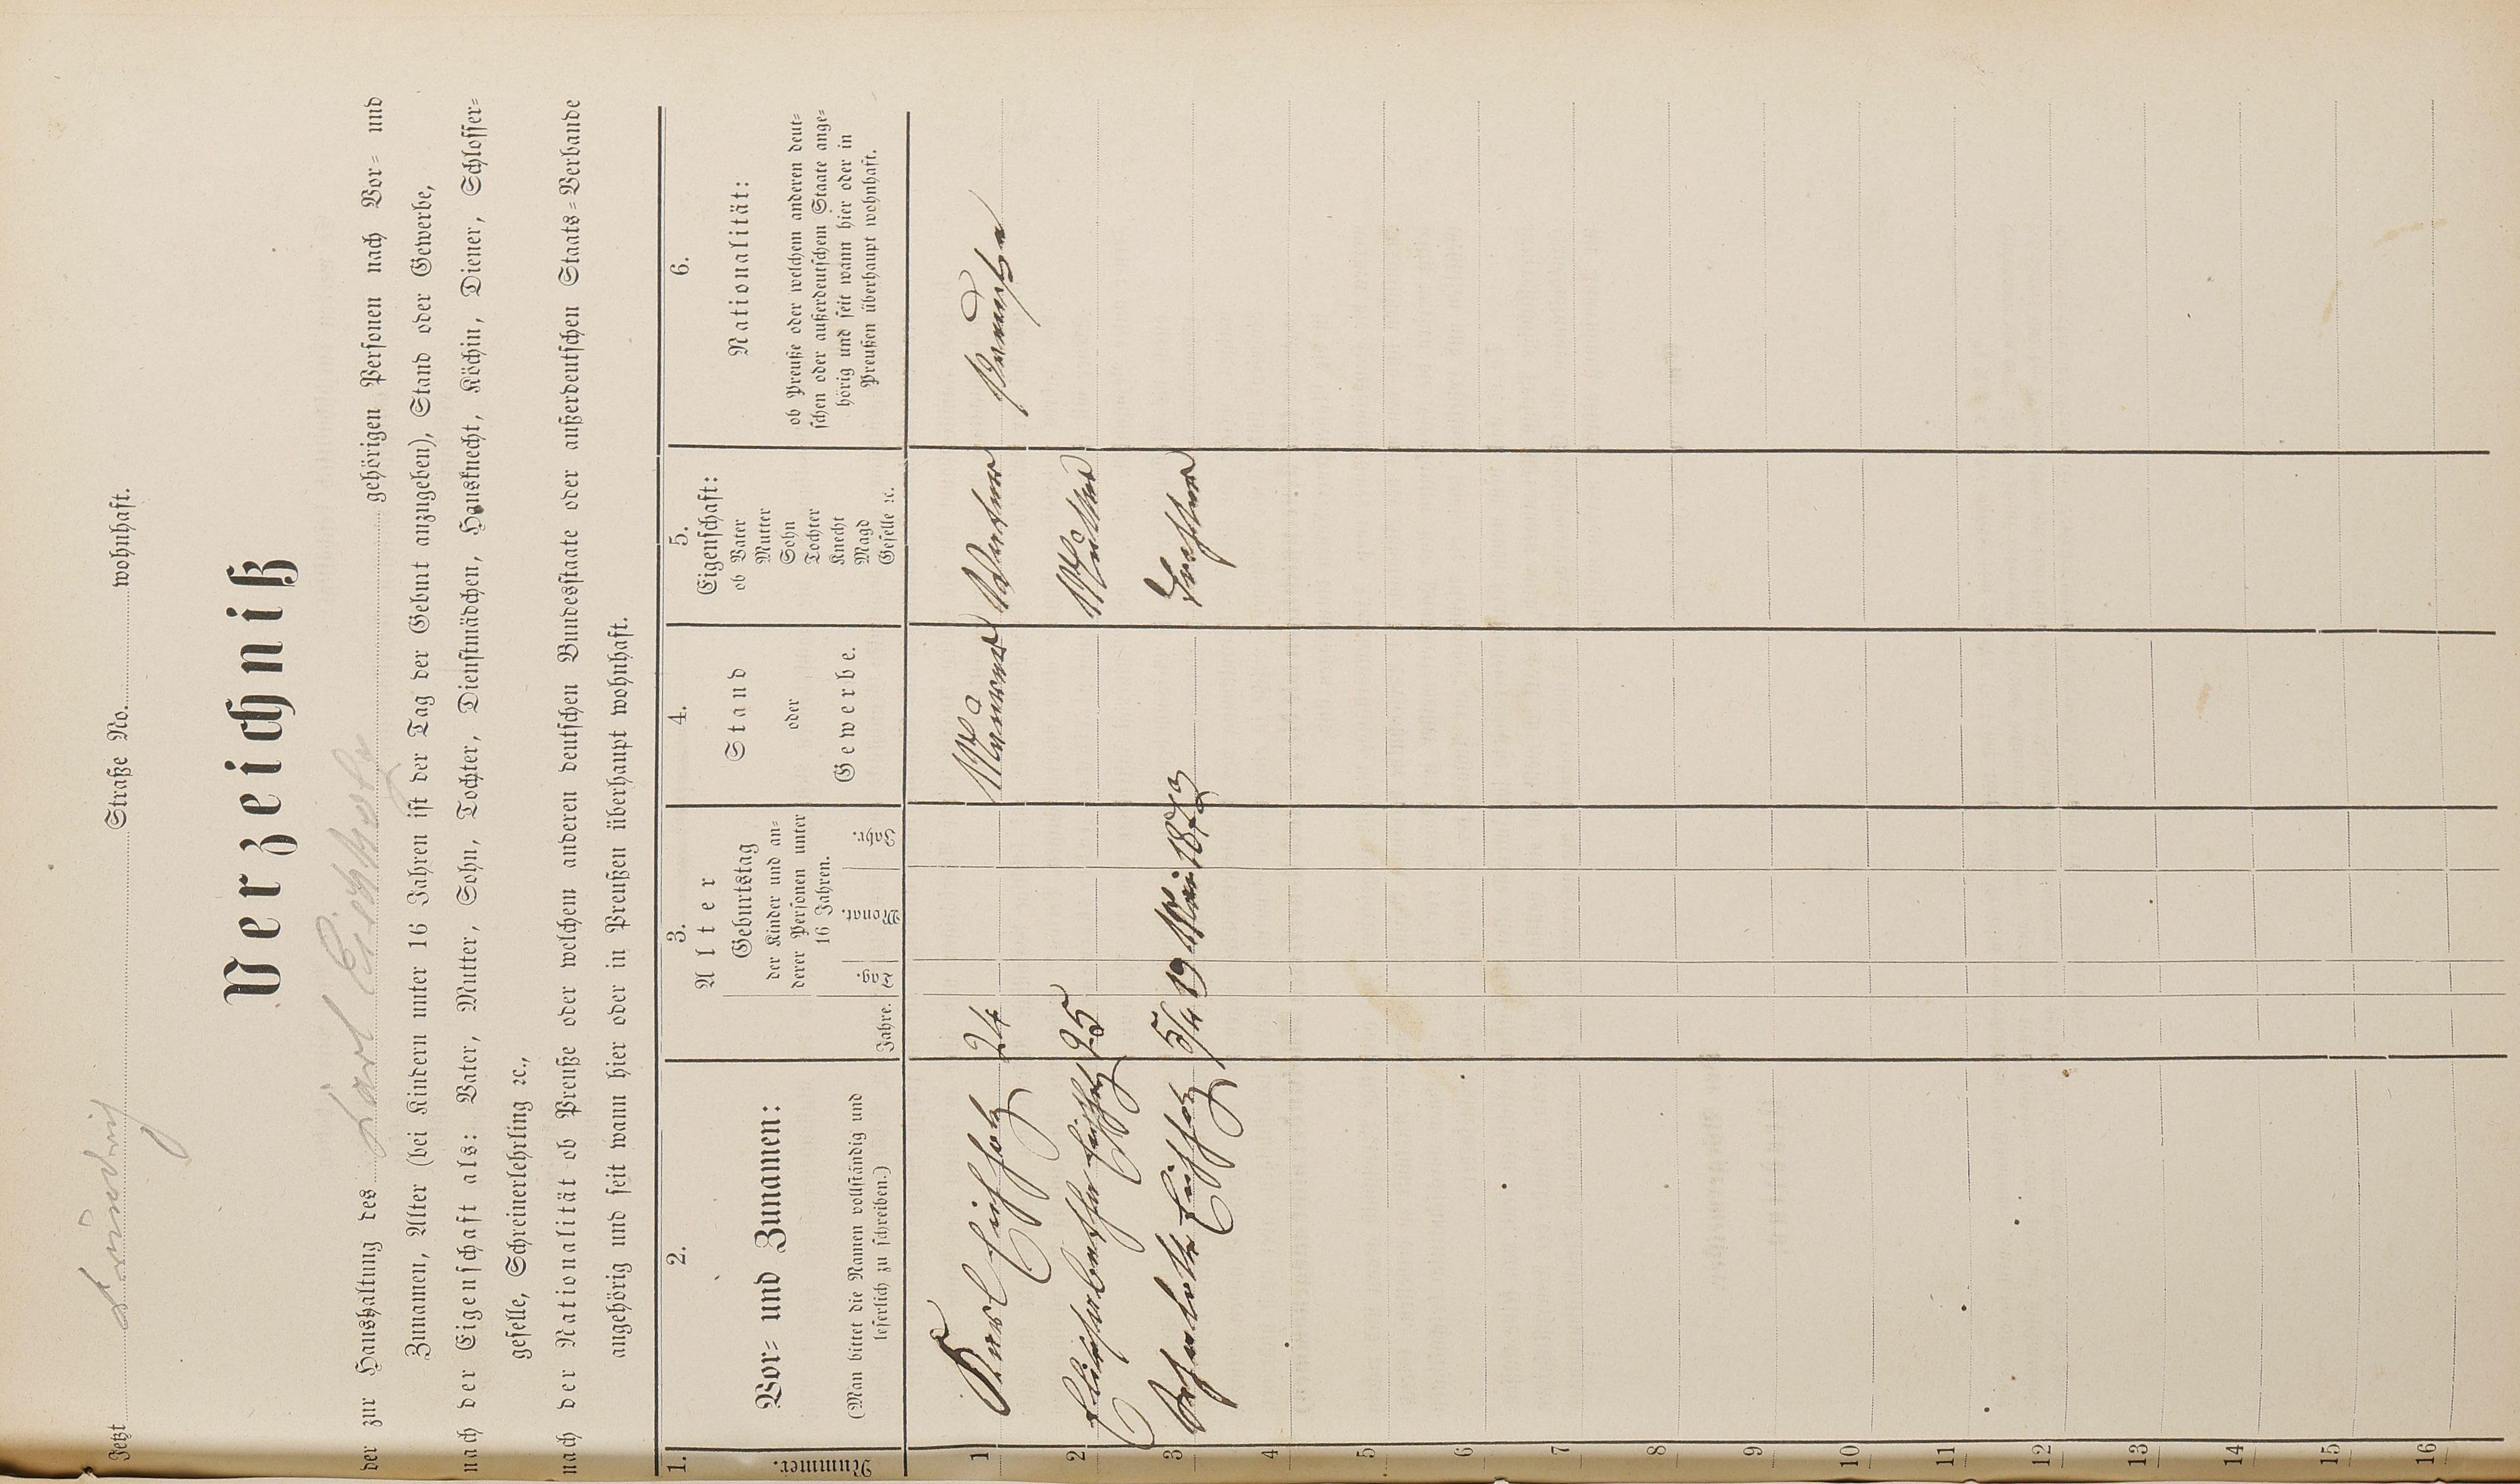 Jetzt Straße No. wohnhaft.
Verzeichniß
der zur Haushaltung des Carl Eichholz gehörigen Personen nach Vor- und
Zunamen, Alter (bei Kindern unter 16 Jahren ist der Tag der Geburt anzugeben), Stand oder Gewerbe,
nach der Eigenschaft als: Vater, Mutter, Sohn, Tochter, Dienstmädchen, Hausknecht, Köchin, Diener, Schlosser-
geselle, Schreinerlehrling ꝛc.,
nach der Nationalität ob Preuße oder welchem anderen deutschen Bundesstaate oder außerdeutschen Staats-Verbande
angehörig und seit wann hier oder in Preußen überhaupt wohnhaft.
1.
Nummer.
2.
Vor- und Zunamen:
(Man bittet die Namen vollständig und
leserlich zu schreiben.)
3.
Alter
Jahre.
Geburtstag
der Kinder und an-
derer Personen unter
16 Jahren.
Tag. Monat. Jahr.
4.
Stand
oder
Gewerbe.
5.
Eigenschaft:
ob Vater
Mutter
Sohn
Tochter
Knecht
Magd
Geselle ꝛc.
6.
Nationalität:
ob Preuße oder welchem anderen deut-
schen oder außerdeutschem Staate ange-
hörig und seit wann hier oder in
Preußen überhaupt wohnhaft.
1 Karl Eichholz 24 Maurer Vater Preuße
2 Elisabetha Eichholz 25 Mutter
3 Eichholz 5/4 19 Mai 1873 Tochter
4
5
6
7
8
9
10
11
12
13
14
15
16